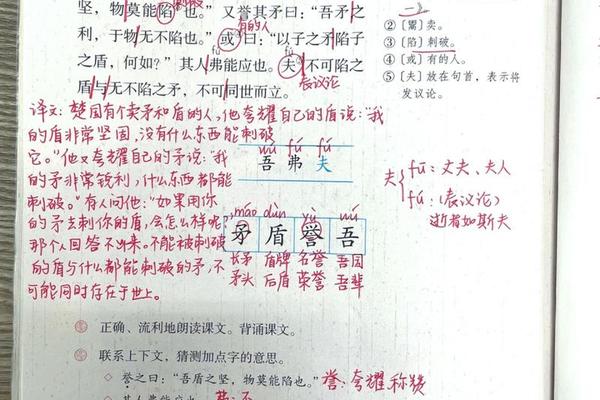 坚，物莫能陷也。”又誉其矛曰：“吾矛之
刺破
利，于物无不陷也。”或曰：“以子之矛陷子
有的人
之盾，何如？”其人弗能应也。夫不可陷之
fú
fú
盾与无不陷之矛，不可同世而立。
表议论
②〔鬻〕卖。
③〔陷〕刺破。
④〔或〕有的人。
⑤〔夫〕放在句首，表示将
发议论。
译文：楚国有个卖矛和盾的人，他夸耀自己的盾说：“我
的盾非常坚固，没有什么东西能刺破
它。”他又夸耀自己的矛说：“我
的矛非常锐利，什么东西都能
刺破。”有人问他：“如果用你
的矛去刺你的盾，会怎么样呢？”
那个人回答不出来。不能被刺破
的盾与什么都能刺破的矛，不
可能同时存在于世上。
wú fú fú
吾弗夫
夫
fū：丈夫、夫人
fú：(表议论)
逝者如斯夫
máo dùn yù wú
矛盾誉吾
长矛 盾牌 名誉 吾国
矛头 后盾 荣誉 吾辈
正确、流利地朗读课文。背诵课文。
联系上下文，猜测加点字的意思。
◇ 誉之曰：“吾盾之坚，物莫能陷也。”
誉：夸耀 称赞
◇ 其人弗能应也。
弗：不